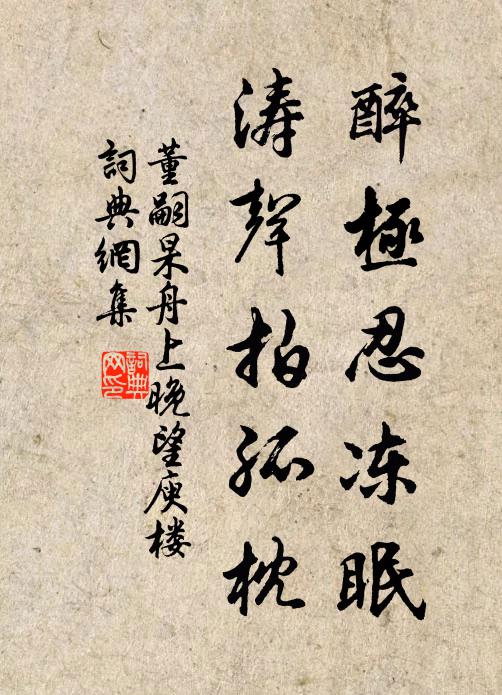 醉極忍冻眠
濤聲拍孤枕
董嗣杲舟上晚望庾楼
詞典網集
詞典网印